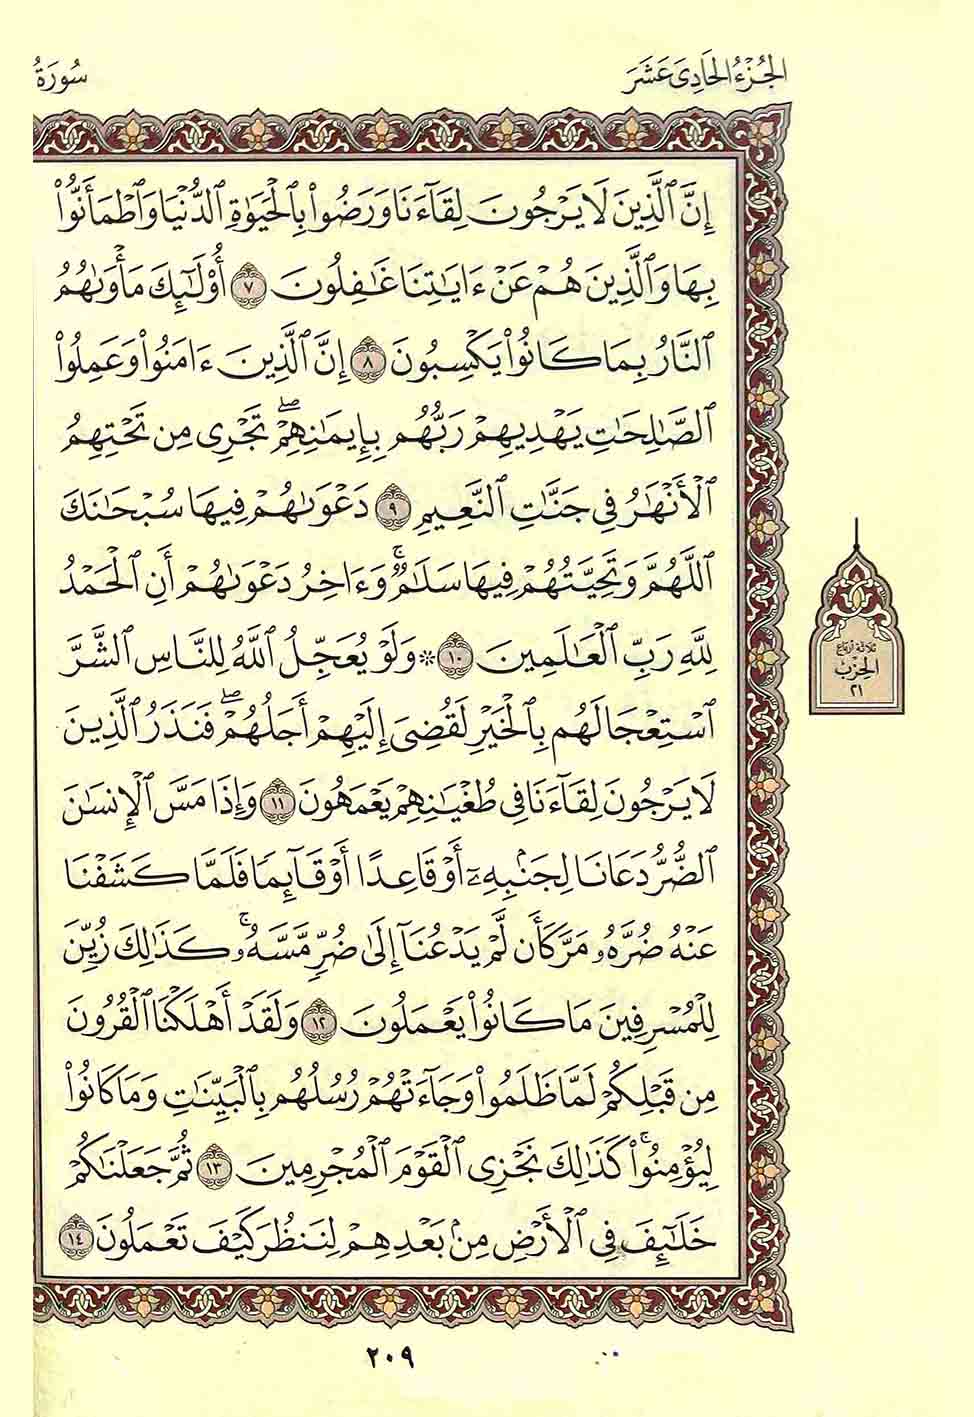 الجُزْءُ الحَادِيَ عَشَرَ
سُورَةُ
إِنَّ ٱلَّذِينَ لَا يَرْجُونَ لِقَآءَنَا وَرَضُوا۟ بِٱلْحَيَوٰةِ ٱلدُّنْيَا وَٱطْمَأَنُّوا۟
بِهَا وَٱلَّذِينَ هُمْ عَنْ ءَايَٰتِنَا غَٰفِلُونَ ٧ أُو۟لَٰٓئِكَ مَأْوَىٰهُمُ
ٱلنَّارُ بِمَا كَانُوا۟ يَكْسِبُونَ ٨ إِنَّ ٱلَّذِينَ ءَامَنُوا۟ وَعَمِلُوا۟
ٱلصَّٰلِحَٰتِ يَهْدِيهِمْ رَبُّهُم بِإِيمَٰنِهِمْۖ تَجْرِى مِن تَحْتِهِمُ
ٱلْأَنْهَٰرُ فِى جَنَّٰتِ ٱلنَّعِيمِ ٩ دَعْوَىٰهُمْ فِيهَا سُبْحَٰنَكَ
ٱللَّهُمَّ وَتَحِيَّتُهُمْ فِيهَا سَلَٰمٌۚ وَءَاخِرُ دَعْوَىٰهُمْ أَنِ ٱلْحَمْدُ
لِلَّهِ رَبِّ ٱلْعَٰلَمِينَ ١٠ * وَلَوْ يُعَجِّلُ ٱللَّهُ لِلنَّاسِ ٱلشَّرَّ
ٱسْتِعْجَالَهُم بِٱلْخَيْرِ لَقُضِىَ إِلَيْهِمْ أَجَلُهُمْۖ فَنَذَرُ ٱلَّذِينَ
لَا يَرْجُونَ لِقَآءَنَا فِى طُغْيَٰنِهِمْ يَعْمَهُونَ ١١ وَإِذَا مَسَّ ٱلْإِنسَٰنَ
ٱلضُّرُّ دَعَانَا لِجَنۢبِهِۦٓ أَوْ قَاعِدًا أَوْ قَآئِمًا فَلَمَّا كَشَفْنَا
عَنْهُ ضُرَّهُۥ مَرَّ كَأَن لَّمْ يَدْعُنَآ إِلَىٰ ضُرٍّ مَّسَّهُۥۚ كَذَٰلِكَ زُيِّنَ
لِلْمُسْرِفِينَ مَا كَانُوا۟ يَعْمَلُونَ ١٢ وَلَقَدْ أَهْلَكْنَا ٱلْقُرُونَ
مِن قَبْلِكُمْ لَمَّا ظَلَمُوا۟ وَجَآءَتْهُمْ رُسُلُهُم بِٱلْبَيِّنَٰتِ وَمَا كَانُوا۟
لِيُؤْمِنُوا۟ۚ كَذَٰلِكَ نَجْزِى ٱلْقَوْمَ ٱلْمُجْرِمِينَ ١٣ ثُمَّ جَعَلْنَٰكُمْ
خَلَٰٓئِفَ فِى ٱلْأَرْضِ مِنۢ بَعْدِهِمْ لِنَنظُرَ كَيْفَ تَعْمَلُونَ ١٤
ثَلاثَة أربَاع
الحِزب
٢١
٢٠٩